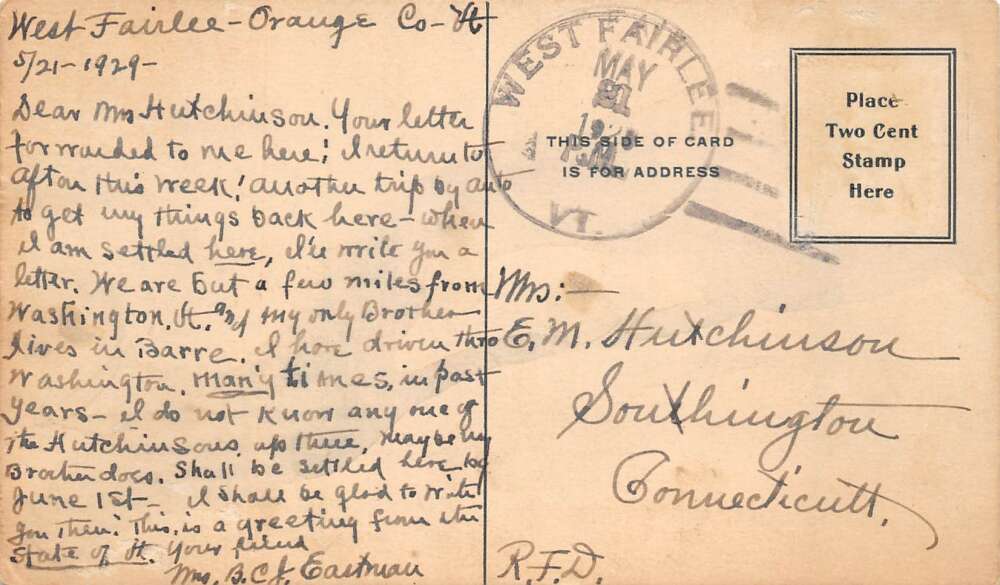 West Fairlee - Orange Co - Vt
5/21 - 1929 -
Dear Mrs Hutchinson. Your letter
forwarded to me here; I return to
afton this week! another trip by auto
to get my things back here - when
I am settled here, I'll write you a
letter. We are but a few miles from
Washington, Vt. and my only Brother
lives in Barre. I have driven thro
Washington, many times, in past
years - I do not know any one of
the Hutchinsons, up there, maybe my
Brother does. Shall be settled here by
June 1st - I shall be glad to write
you then. This, is a greeting from the
State of Vt. Your friend
Mrs. B.C.J. Eastman
WEST FAIRLEE
MAY
21
VT.
THIS SIDE OF CARD
IS FOR ADDRESS
Place
Two Cent
Stamp
Here
Mrs: -
E. M. Hutchinson
Southington
Connecticutt,
R.F.D.